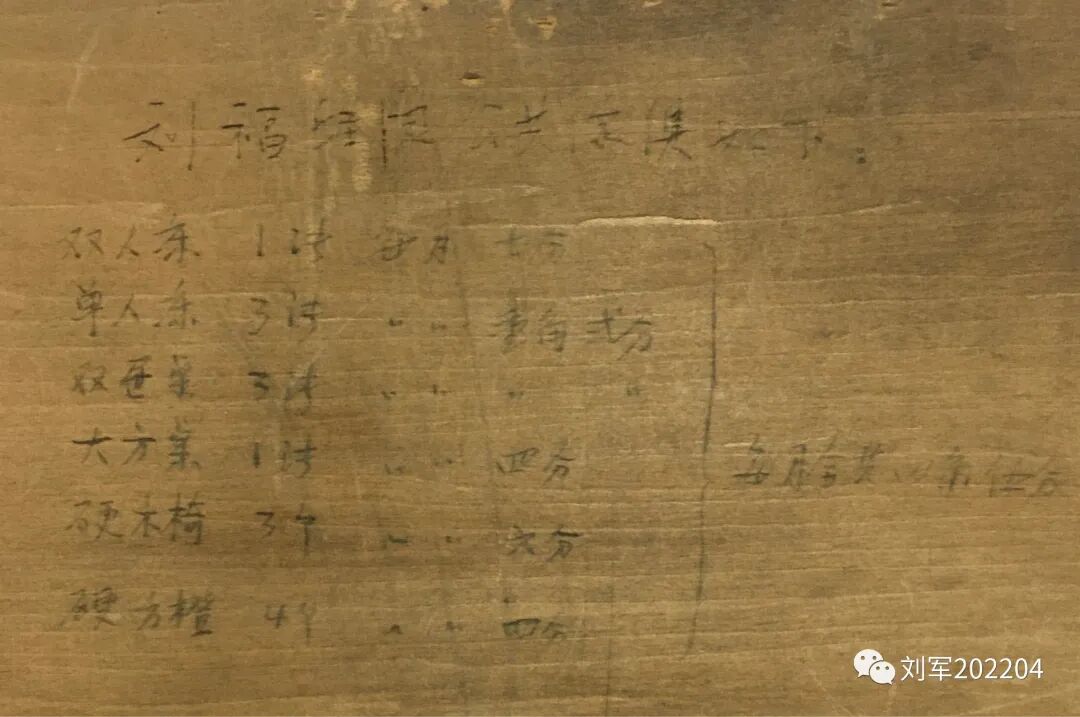 刘福 如下：
双人床 1张 每月 七分
单人床 3张 〃 〃 壹角 分
双屉桌 3张 〃 〃 〃 〃
大方桌 1张 〃 〃 四分
硬木椅 3个 〃 〃 六分
硬方橙 4个 〃 〃 四分
每月 共 分
刘军202204